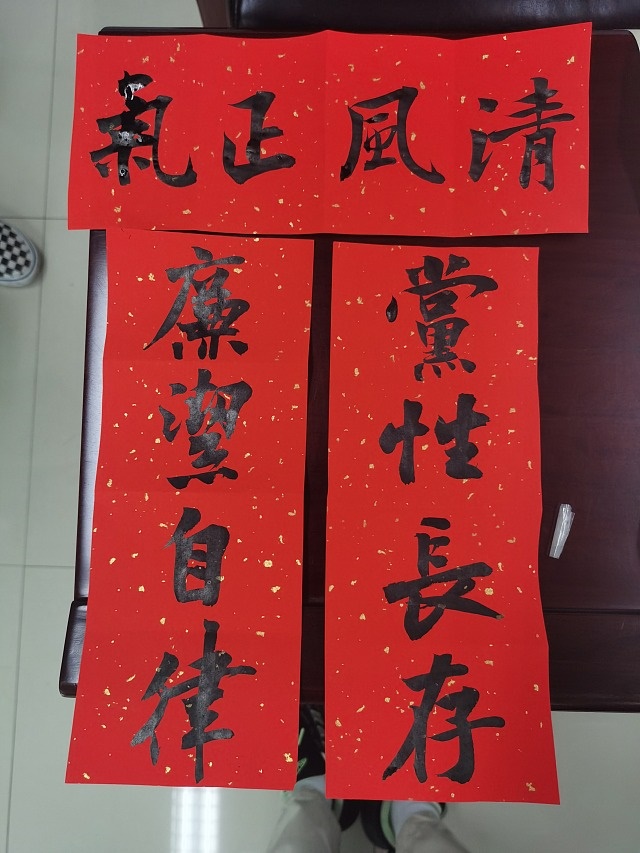 清風正氣
黨性長存
廉潔自律